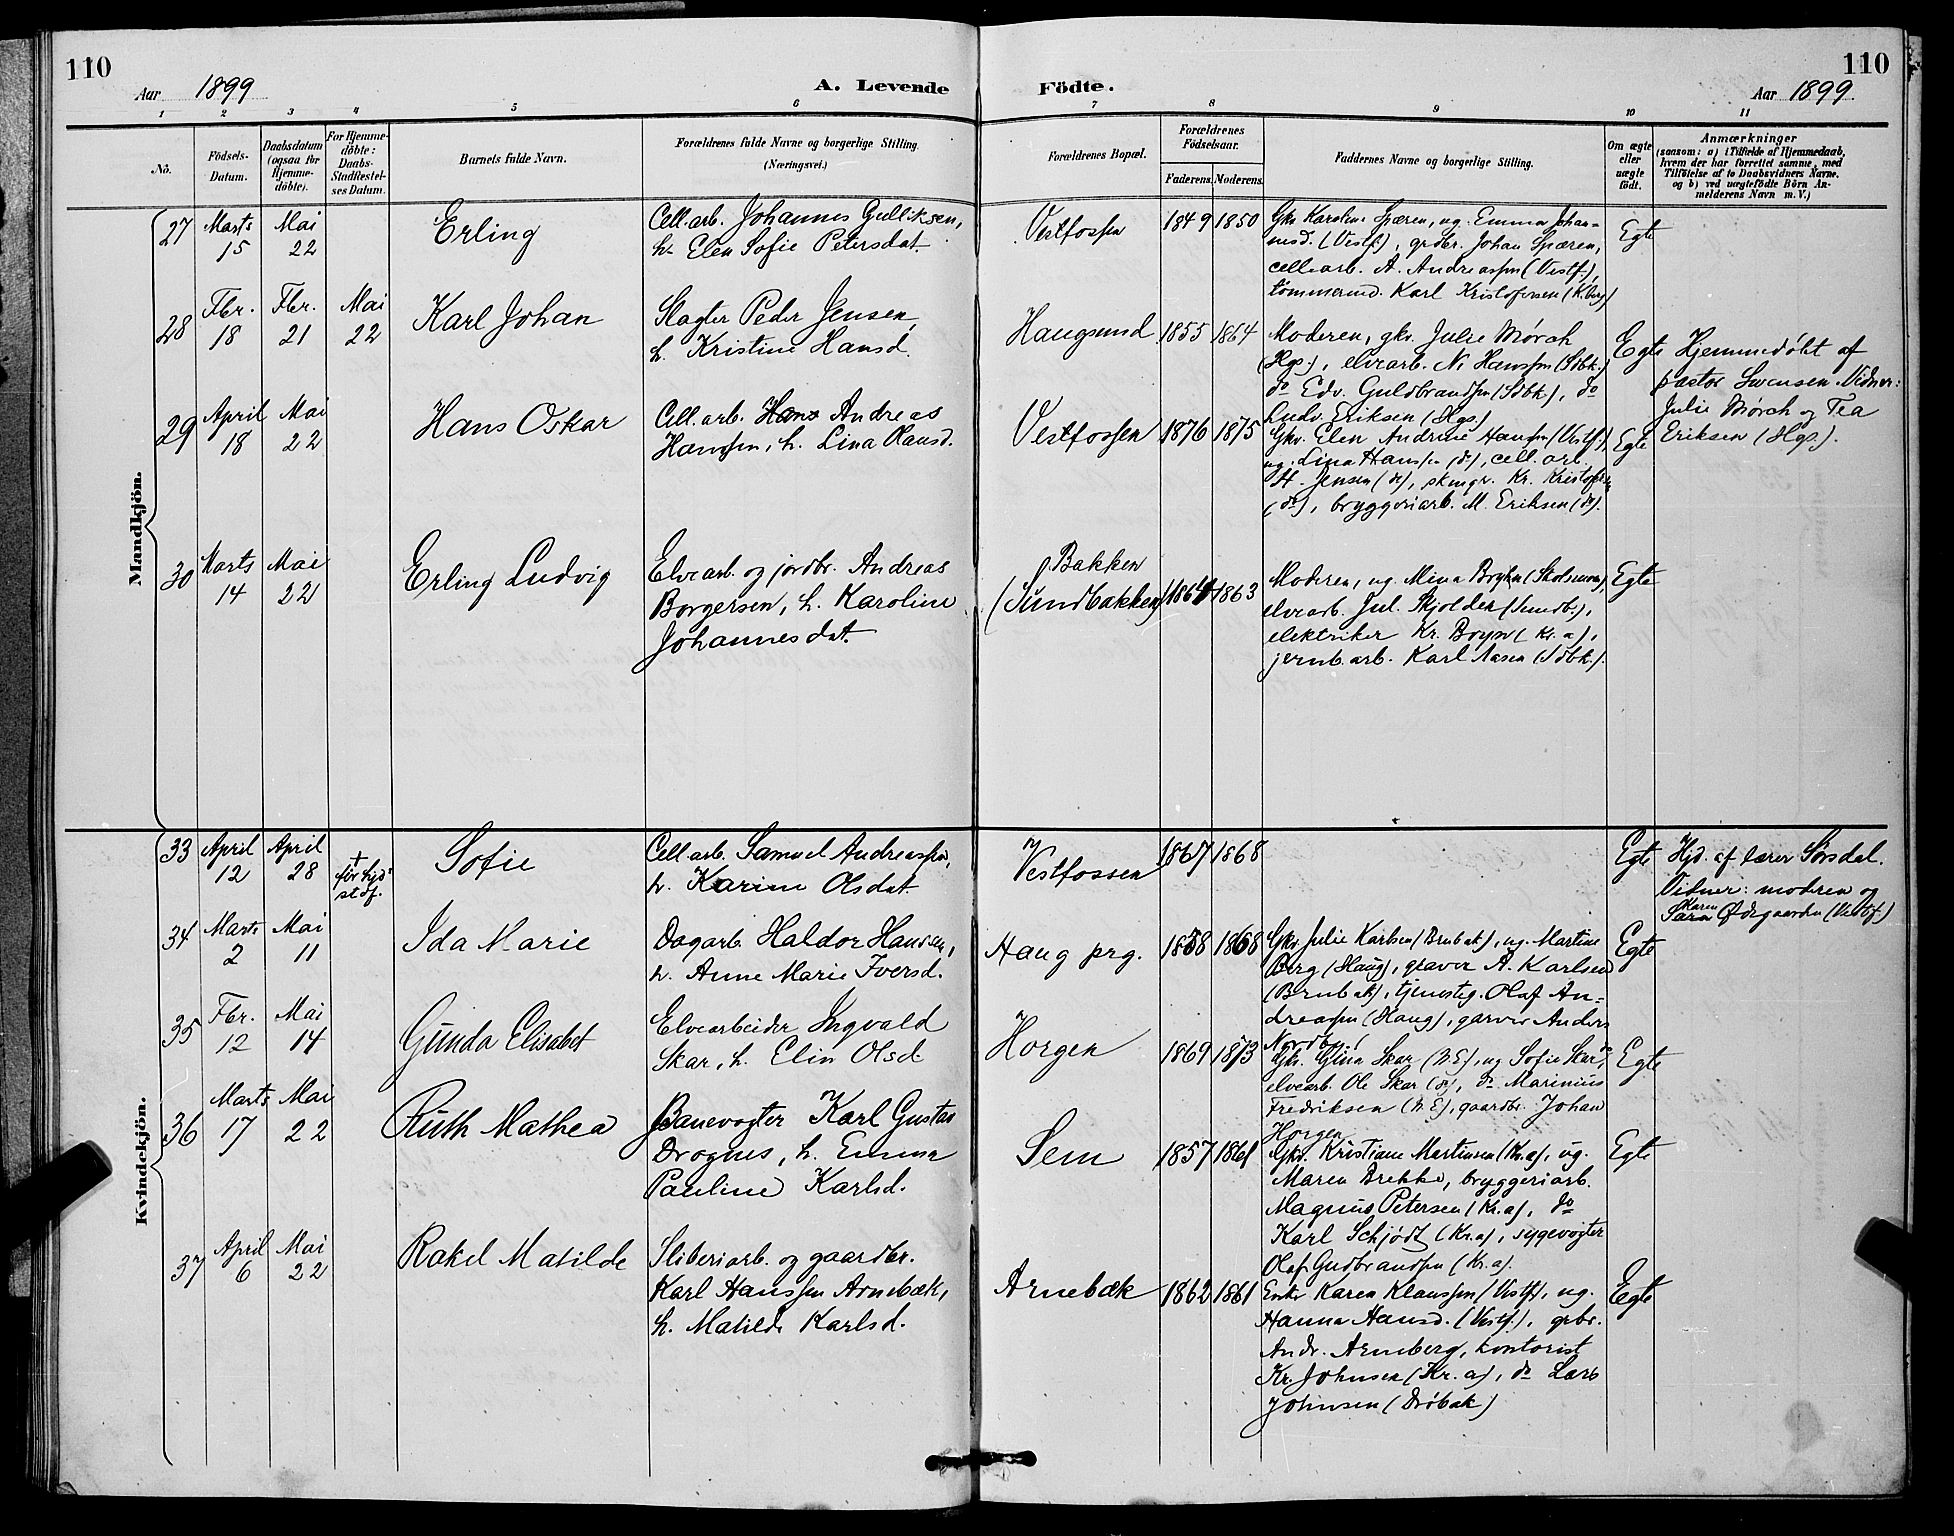 110
110
Aar 1899
A. Levende
Födte.
Aar 1899.
1 2 3 4 5 6 7 8 9 10 11
No.
Födsels-
Datum.
Daabsdatum
(ogsaa for
Hjemme-
döbte).
For Hjemme-
döbte:
Daabs-
Stadfestel-
ses Datum.
Barnets fulde Navn.
Forældrenes fulde Navne og borgerlige Stilling.
(Næringsvei.)
Forældrenes Bopæl.
Forældrenes
Födselsaar.
Faderens.
Moderens.
Faddernes Navne og borgerlige Stilling.
Om ægte
eller
uægte
födt.
Anmærkninger
(saasom: a) i Tilfælde af Hjemmedaab,
hvem der har forrettet samme, med
Tilföielse af to Daabsvidners Navne,
og b) ved uægtefödte Börn An-
melderens Navn m. V.)
Mandkjön.
27
Marts
15
Mai
22
Erling
Cell.arb. Johannes Gulliksen,
h. Elen Sofie Petersdat.
Vestfossen
1849
1850
Gkv. Karoline Spæren, ug. Emma Johan-
nesd. (Vestf.), grdbr. Johan Spæren,
cellearb. A. Andreassen (Vestf.),
tømmermd. Karl Kristofersen (K.berg)
Egte
28
Fbr.
18
Fbr.
21
Mai
22
Karl Johan
Slagter Peder Jensen,
h. Kristine Hansd.
Haugsund
1855
1864
Moderen, gkv. Julie Mørch
(Hgs.), elvearb. N. Hanssen (Sdbk.)
do Edv. Guldbrandsen (Sdbk.), do
Ludv. Eriksen (Hgs)
Egte
Hjemmedøbt af
pastor Svensen. Vidner:
Julie Mørch og Tea
Eriksen (Hgs.).
29
April
18
Mai
22
Hans Oskar
Cell.arb. Hans Andreas
Hanssen, h. Lina Hansd.
Vestfossen
1876
1875
Gkv. Elen Andrine Hanssen (Vestf.),
ug. Lina Hanssen (do), cell.arb.
H. Jensen (do), skmgr. Kr. Kristofersen
(do), bryggeriarb. M. Eriksen (do).
Egte
30
Marts
14
Mai
22
Erling Ludvig
Elvearb. og jordbr. Andreas
Borgersen, h. Karoline
Johannesdat.
Bakken
(Sundbakken)
1864
1863
Moderen, ug. Mina Bryhn (Skotselven),
elvearb. Jul. Skjolden (Sundb.),
elektriker Kr. Bryn (Kr.a),
jernb.arb. Karl Aasen (Sdbk.).
Egte
Kvindekjön.
33
April
12
April
28
+
før hjd
stdf.
Sofie
Cell.arb. Samuel Andreassen,
h. Karine Olsdat.
Vestfossen
1867
1868
Egte
Hjd. af lærer Sørsdal.
Vidner: moderen og
Karen
Sara Ødegaarden (Vestf.)
34
Marts
2
Mai
11
Ida Marie
Dagarb. Haldor Hansen,
h. Anne Marie Iversd.
Haug prg.
1858
1868
Gkv. Julie Karlsen (Brubak), ug. Martine
Berg (Haug), graver A. Karlsen
(Brubak), tjenesteg. Olaf An-
dreassen (Haug), garver Anders
Nordby.
Egte
35
Fbr.
12
Mai
14
Gunda Elisabet
Elvearbeider Ingvald
Skar, h. Elin Olsd
Horgen
1869
1873
Gkv. Gina Skar (N.E), ug Sofie Skar do,
elvearb. Ole Skar (do), do Marinius
Fredriksen (N.E), gaardbr. Johan
Horgen
Egte
36
Marts
17
Mai
22
Ruth Mathea
Banevogter Karl Gustav
Drognes, h. Emma
Pauline Karlsd.
Sem
1857
1861
Gkv. Kristiane Martinsen (Kr.a), ug.
Maren Brekke, bryggeriarb.
Magnus Petersen (Kr.a), do
Karl Schjødt (Kr.a), sygevogter
Olaf Gudbrandsen (Kr.a).
Egte
37
April
6
Mai
22
Rakel Matilde
Sliberiarb. og gaardbr.
Karl Hanssen Arnebæk,
h. Matilde Karlsd.
Arnebæk
1862
1861
Enke Karen Klaussen (Vestf), ug.
Hanna Hansd. (Vestf.), grbr.
Andr. Arneberg, kontorist
Kr. Johnsen (Kr.a), do Lars
Johnsen (Drøbak)
Egte